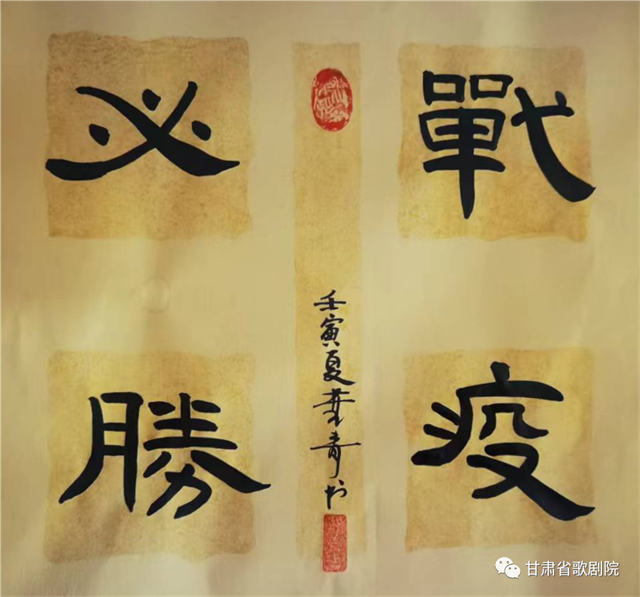 戰疫
必勝
壬寅夏葉青书
甘肃省歌剧院